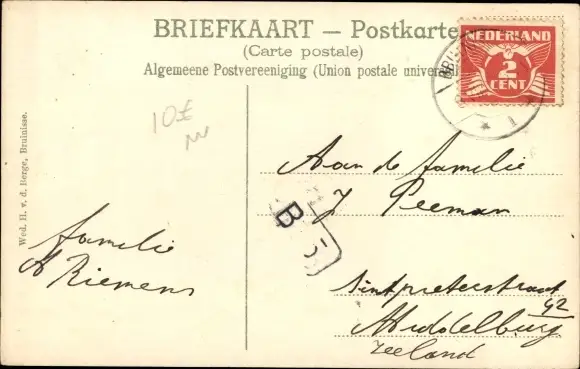 BRIEFKAART – Postkarte
(Carte postale)
Algemeene Postvereeniging (Union postale universelle
NEDERLAND
2
CENT
BRUI
1
10£
Wed. H. v. d. Berge, Bruinisse.
familie
A Riemens
Aan de familie
J Peeman
B
5
Sintpieterstraat
G2
Middelburg
Zeeland